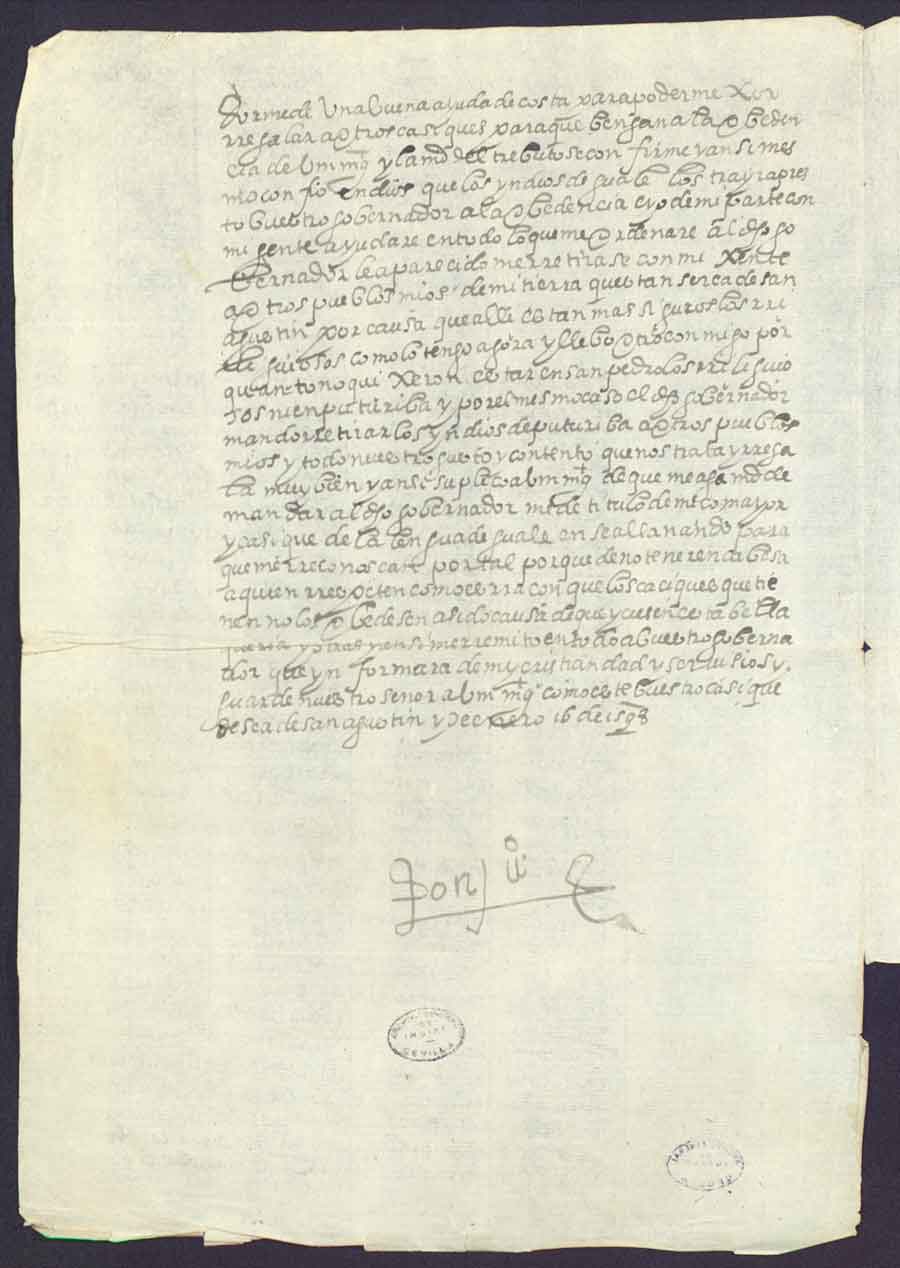 aserme de una buena ayuda de costa para poderme yor
rregalar a otros casiques para que bengan a la obedien
cia de V mg y la md del trebuto se confirme y ansi mes
mo confio en dios que los yndios de guale los trayra pres
to buestro gobernador a la obedencia e yo de mi parte con
mi gente ayudare en todo lo que me ordenare al dho go
bernador le a parecido me rretirase con mi xente
a otros pueblos mios de mi tierra questan serca de san
agustin por causa que alli estan mas siguros los rri
ligiosos como lo tengo agora y llebo otro conmigo por
que an tono qui xeron estar en san pedro los rreligio
sos ni en puturiba y por el mesmo caso el dho gobernador
mando rretirar los yndios de puturiba a otros pueblos
mios y todo nuestro gusto y contento que nos trata y rrega
la muy bien y ansi suplico a V mg de que me aga md de
mandar al dho gobernador me de titulo de mico mayor
y casique de la lengua de guale en se allanando para
que me rreconoscan por tal porque de no tener en cabesa
a quien rrespeten como cerria con que los caciques que tie
nen no los obedesen a sido causa de que ycuiesen esta bella
queria y otras y en si me rremito en todo a buestro goberna
dor que ynformara de my cristiandad y ser
guarde nuestro señor a V mg como este buestro casique
desea de san agustin y de enero 16 de 1598
Don juo
ARCHIVO GENERAL
DE
INDIAS
SEVILLA